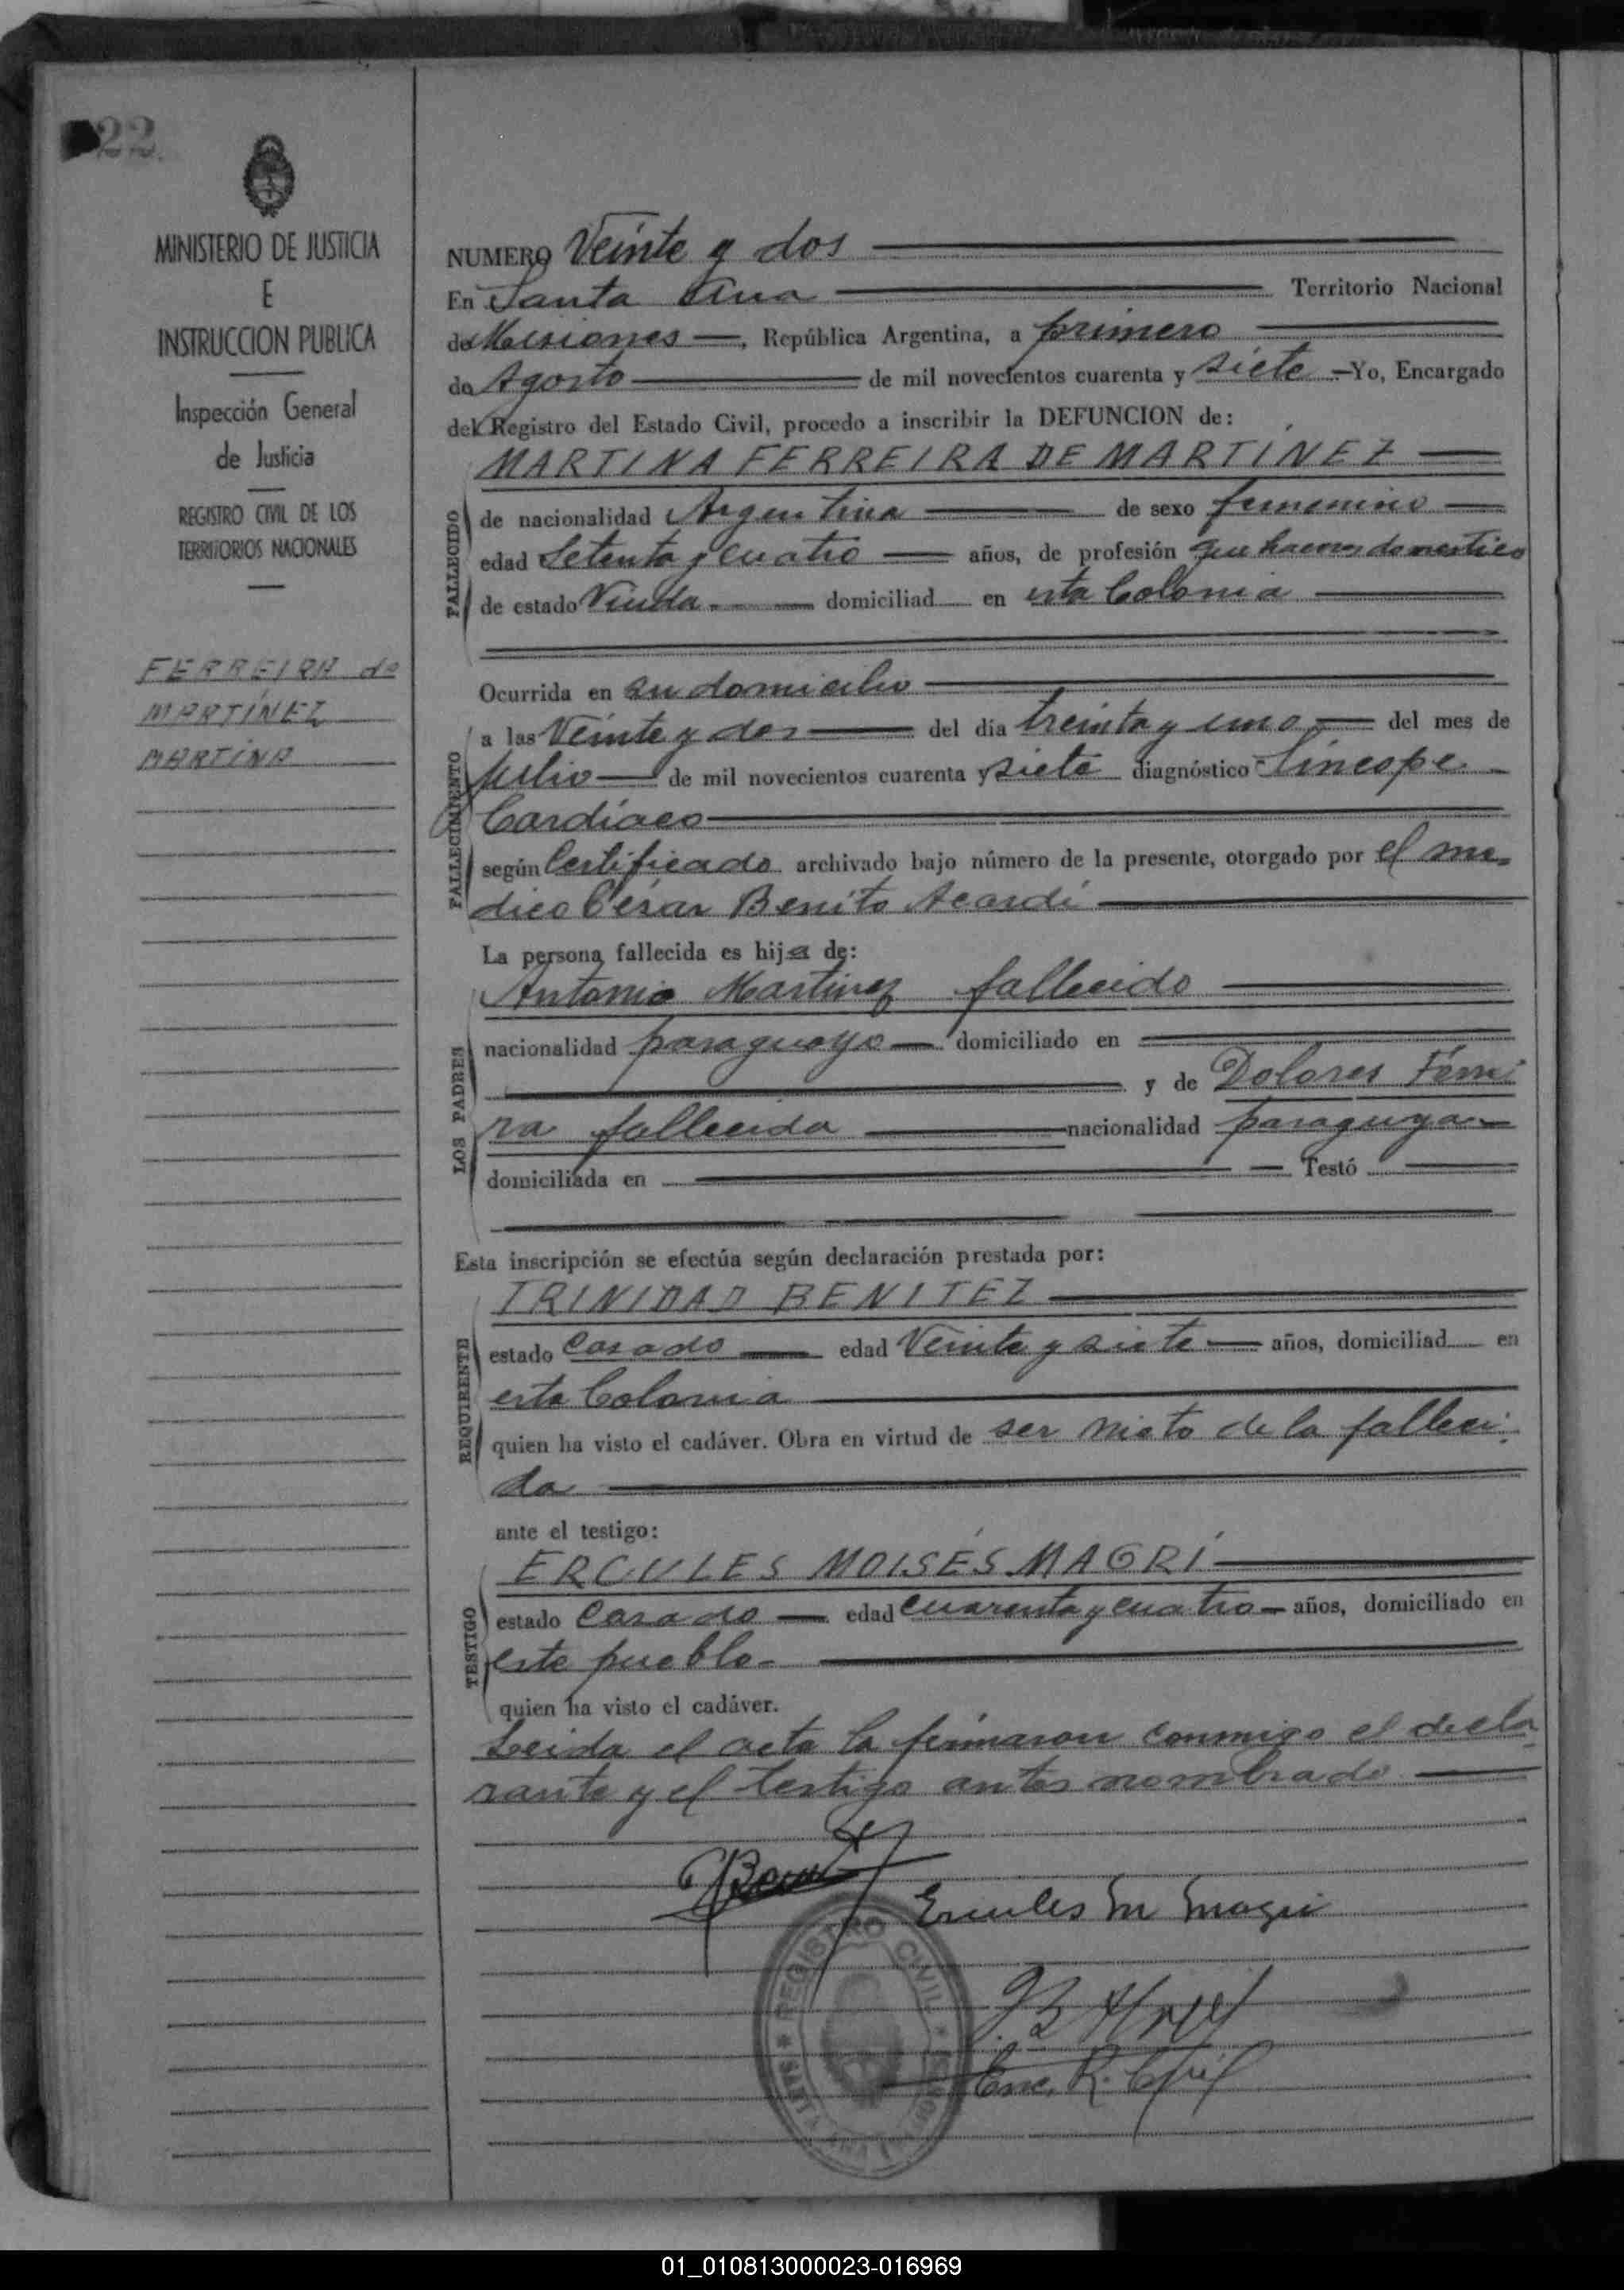 22.
MINISTERIO DE JUSTICIA
E
INSTRUCCION PUBLICA
Inspección General
de Justicia
REGISTRO CIVIL DE LOS
TERRITORIOS NACIONALES
FERREIRA de
MARTÍNEZ
MARTINA
NUMERO Veinte y dos
En Santa Ana Territorio Nacional
de Misiones, República Argentina, a primero
de Agosto de mil novecientos cuarenta y siete - Yo, Encargado
del Registro del Estado Civil, procedo a inscribir la DEFUNCION de:
MARTINA FERREIRA DE MARTÍNEZ
FALLECIDO
de nacionalidad Argentina de sexo femenino
edad Setenta y cuatro años, de profesión que haceres domestico
de estado Viuda. domiciliad en esta Colonia
Ocurrida en su domicilio
FALLECIMIENTO
a las Veinte y dos del día treinta y uno del mes de
Julio de mil novecientos cuarenta y siete diagnóstico Síncope
Cardíaco
según Certificado archivado bajo número de la presente, otorgado por el me-
dico César Benito Acardi
La persona fallecida es hija de:
LOS PADRES
Antonio Martinez fallecido
nacionalidad paraguayo domiciliado en
y de Dolores Ferrei
ra fallecida nacionalidad paraguya
domiciliada en Testó
Esta inscripción se efectúa según declaración prestada por:
TRINIDAD BENITEZ
REQUIRENTE
estado casado edad Veinte y siete años, domiciliad en
esta Colonia
quien ha visto el cadáver. Obra en virtud de ser nieto de la falleci-
da
ante el testigo:
ERCULES MOISÉS MAGRÍ
TESTIGO
estado Casado edad cuarenta y cuatro años, domiciliado en
este pueblo
quien ha visto el cadáver.
Leida el acta la firmaron conmigo el decla
rante y el testigo antes nombrado
Ercules M Magri
Enc. R. Civil
REGISTRO CIVIL
SANTA ANA
01_010813000023-016969